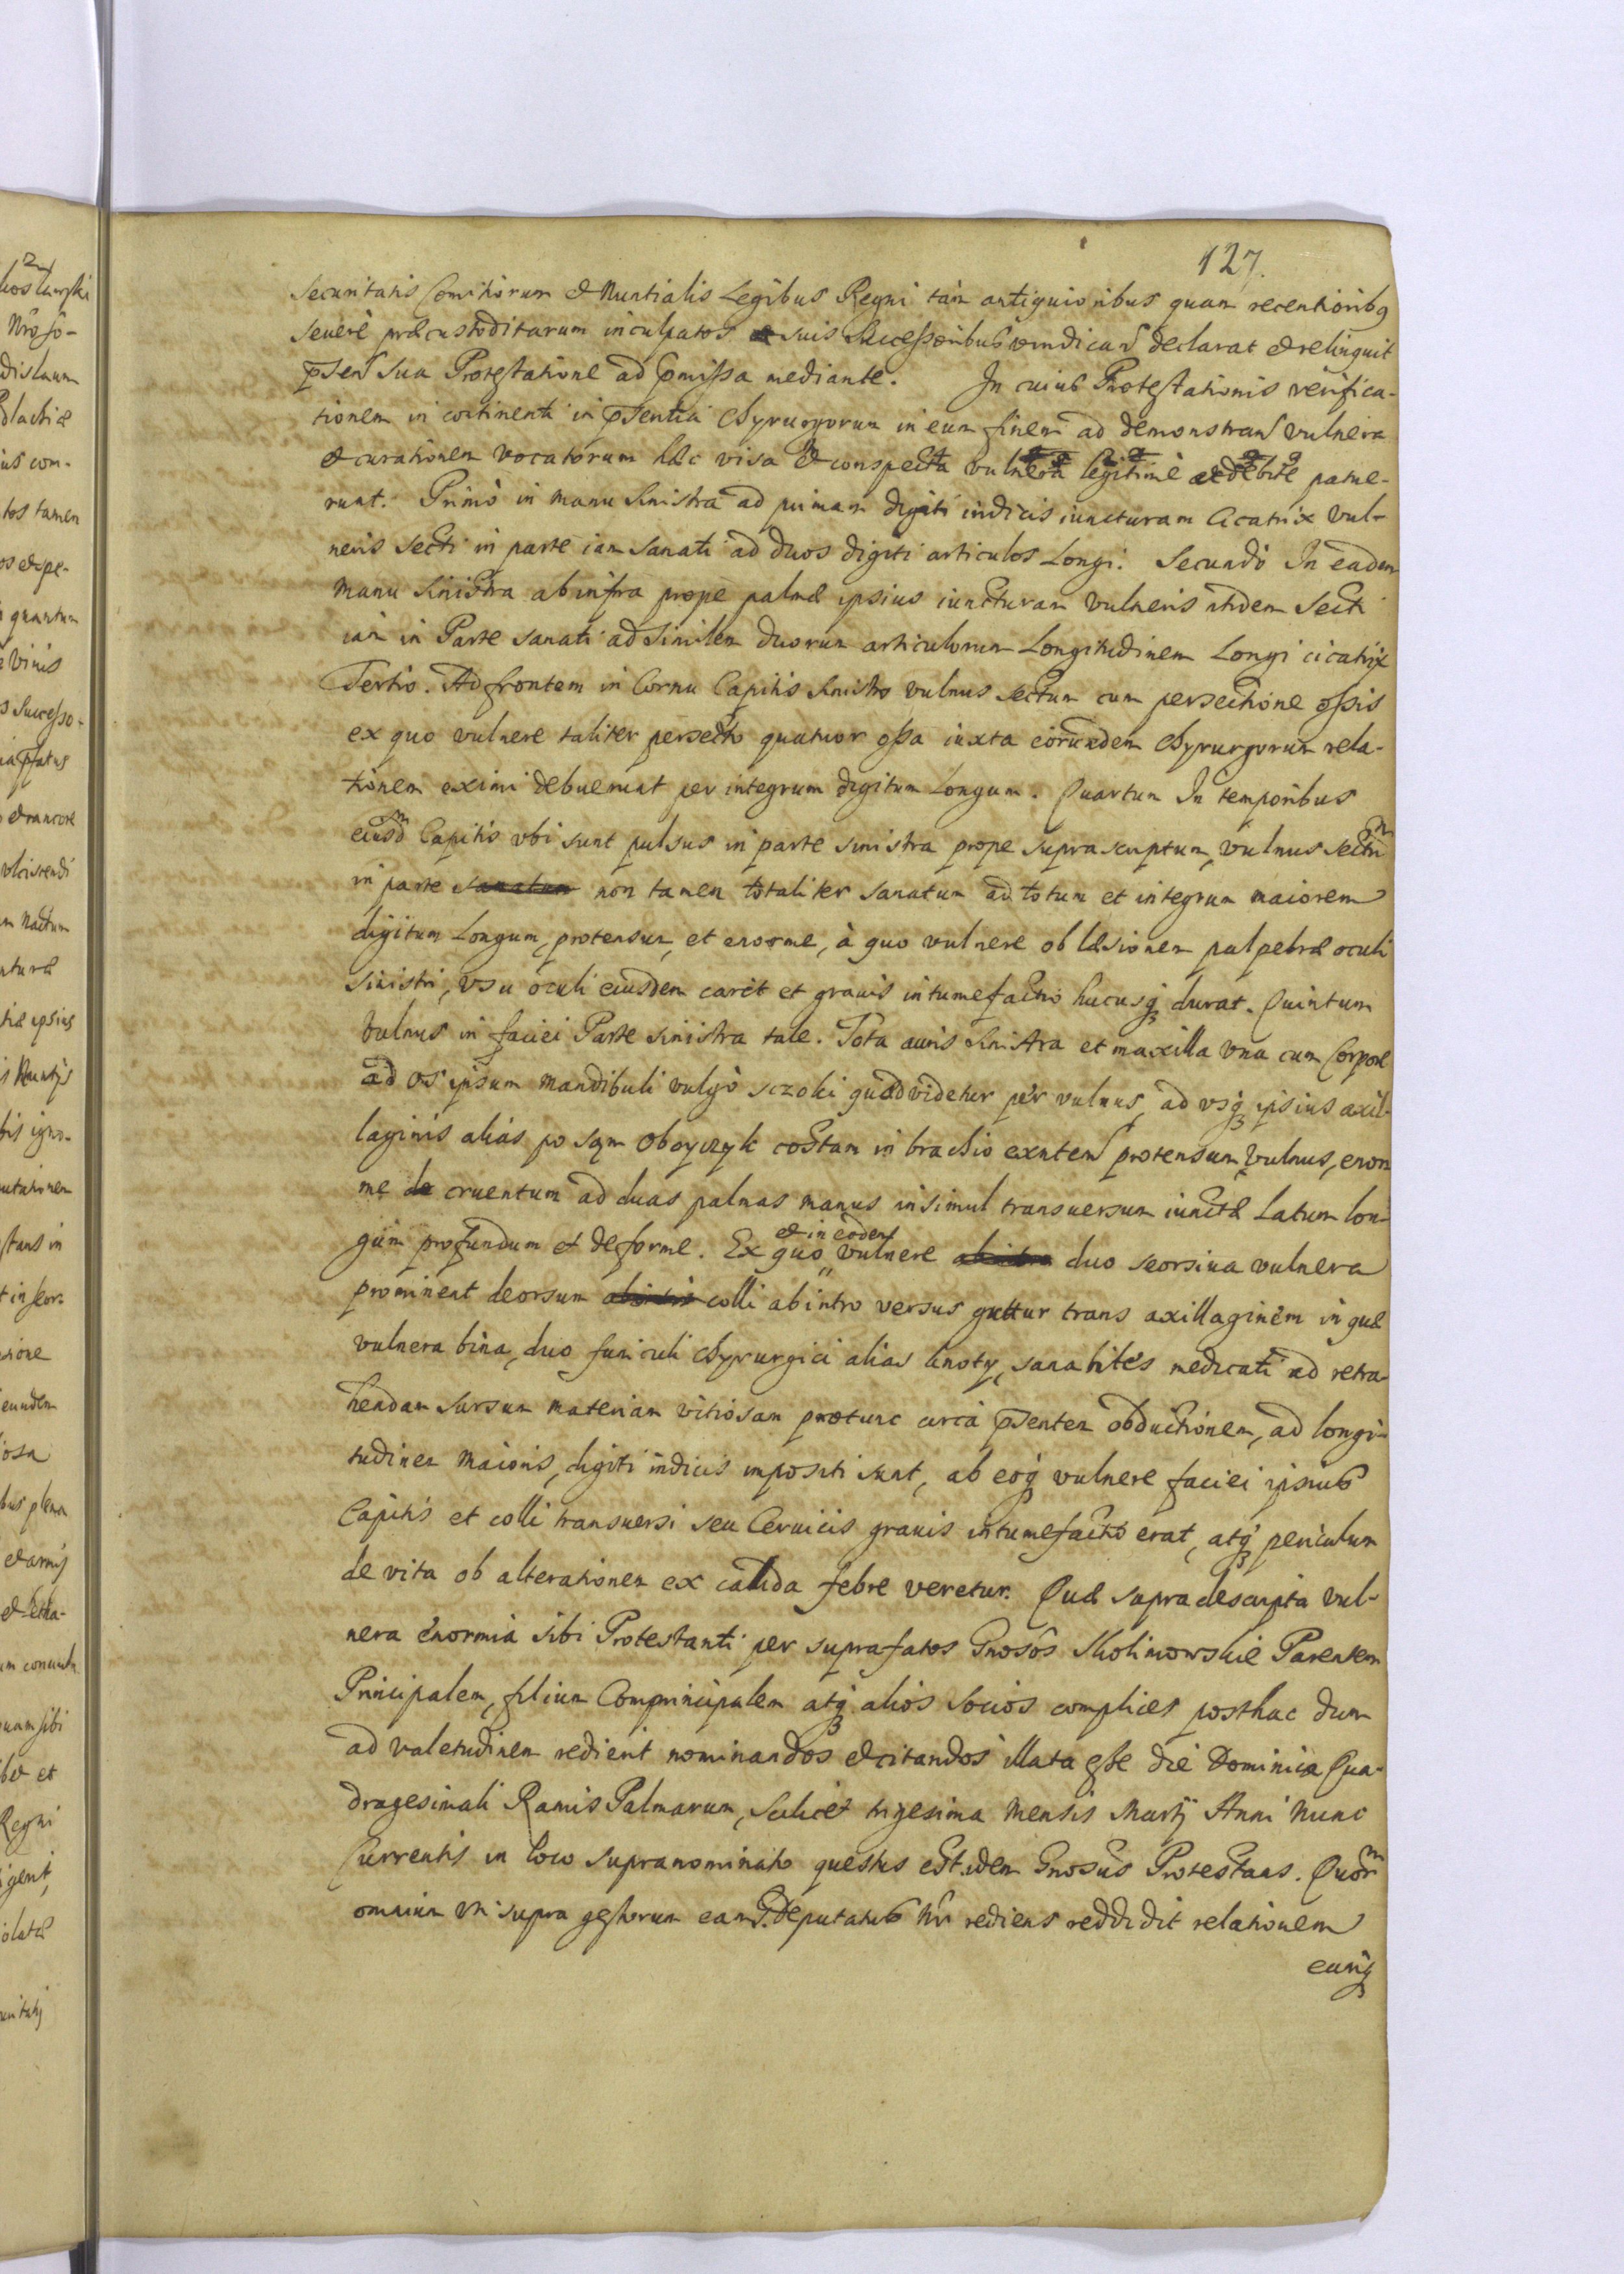 127.
securitatis Comitiorum et Nuntialis Legibus Regni tam antiquioribus quam recentioribq
severè præcustoditarum inculpatos suis Successoribus vindican declarat et relinquit
pnten sua Protestatione ad pmissa mediante. In cuius Protestationis verifica-
tionem in continenti in pntentia Chyrurgorum in eum finem ad demonstran vulnera
et curationem vocatorum hæc visa et conspecta vulnera legitimè ac debite patue-
runt. Primò in manu sinistra ad primam digiti indicis iuncturam Cicatrix vul-
neris secti in parte iam sanati ad duos digiti articulos Longi. Secundò In eadem
manu sinistra ab infra prope palmæ ipsius iuncturam vulneris itidem secti
iam in Parte sanati ad similem duorum articulorum Longitudinem Longi cicatrix
Tertio. Ad frontem in Cornu Capitis sinistro vulnus sectum cum persectione ossis
ex quo vulnere taliter persecto quatuor ossa iuxta eorundem Chyrurgorum rela-
tionem eximi debuerunt per integrum digitum Longum. Quartum In temporibus
eiusdm Capitis vbi sunt pulsus in parte sinistra prope suprascriptum, vulnus sectum
in parte sanatum non tamen totaliter sanatum ad totum et integrum maiorem
digitum Longum, protensum, et enorme, à quo vulnere ob læsionem palpebræ oculi
sinistri, vsu oculi eiusdem caret et grauis intumefactio hucusq durat. Quintum
Vulnus in faciei Parte sinistra tale. Tota auris sinistra et maxilla vna cum Corpore
ad os ipsum mandibuli vulgò sczoki quod videtur per vulnus, ad vsq ipsius axil-
laginis alias po sąm oboyczyk costam in brachio exnten protensum vulnus, enor-
me cruentum ad duas palmas manus insimul transuersum iunctæ Latum lon-
gum profundum et deforme. Ex quo et in eodem vulnere duo seorsiua vulnera
prominent deorsum colli ab intro versus guttur trans axillaginem in quæ
vulnera bina, duo funiculi Chyrurgici alias knoty, sanabiles medicati ad retra-
hendam sursum materiam vitiosam protunc circa pntentem obductionem, ad longi-
tudinem maioris, digiti indicis impositi sunt, ab eoq vulnere faciei ipsius
Capitis et colli transuersi seu Ceruicis grauis intumefactio erat, atq periculum
de vita ob alterationem ex calida febre veretur. Quæ supradescripta vul-
nera enormia sibi Protestanti per suprafatos Gnosos Skolimowskie Parentem
Principalem, filium Comprincipalem atq alios socios complices posthac dum
ad valetudinem redierit nominandos et citandos illata esse die Dominica Qua-
dragesimali Ramis Palmarum, scilicet trigesima mensis Martij Anni nunc
Currentis in loco supranominato questus est idem Gnosus Protestans. Quorm
omnium vti supra gestorum eamd. Deputatus Nr rediens reddidit relationem
eamq